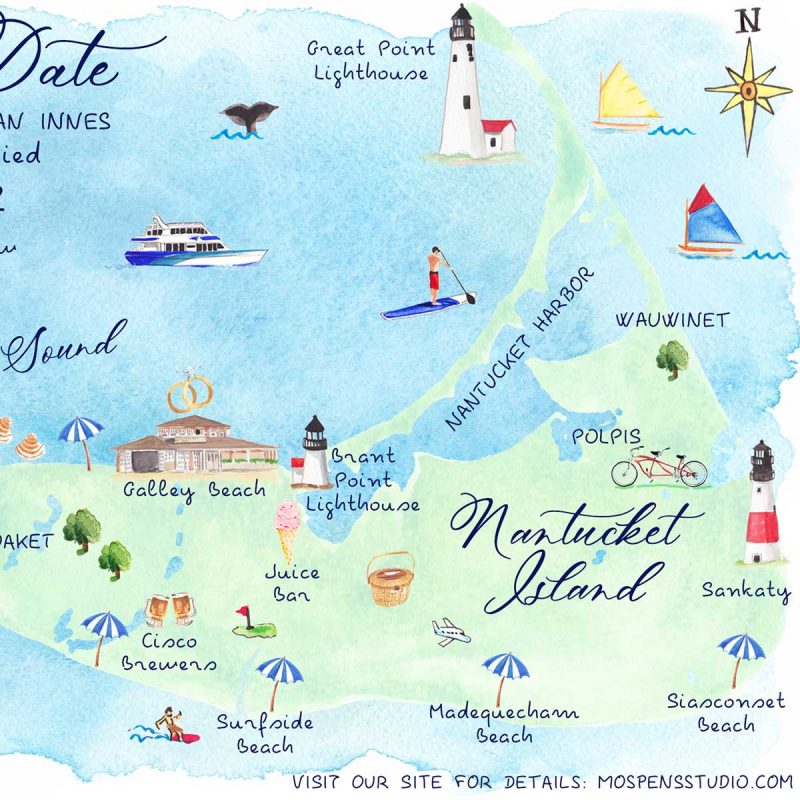 Date
AN INNES
ied
2
Sound
Great Point
Lighthouse
N
NANTUCKET HARBOR
WAUWINET
POLPIS
Brant
Point
Lighthouse
Galley Beach
AKET
Nantucket
Island
Juice
Bar
Sankaty
Cisco
Brewers
Surfside
Beach
Madequecham
Beach
Siasconset
Beach
VISIT OUR SITE FOR DETAILS: MOSPENSSTUDIO.COM